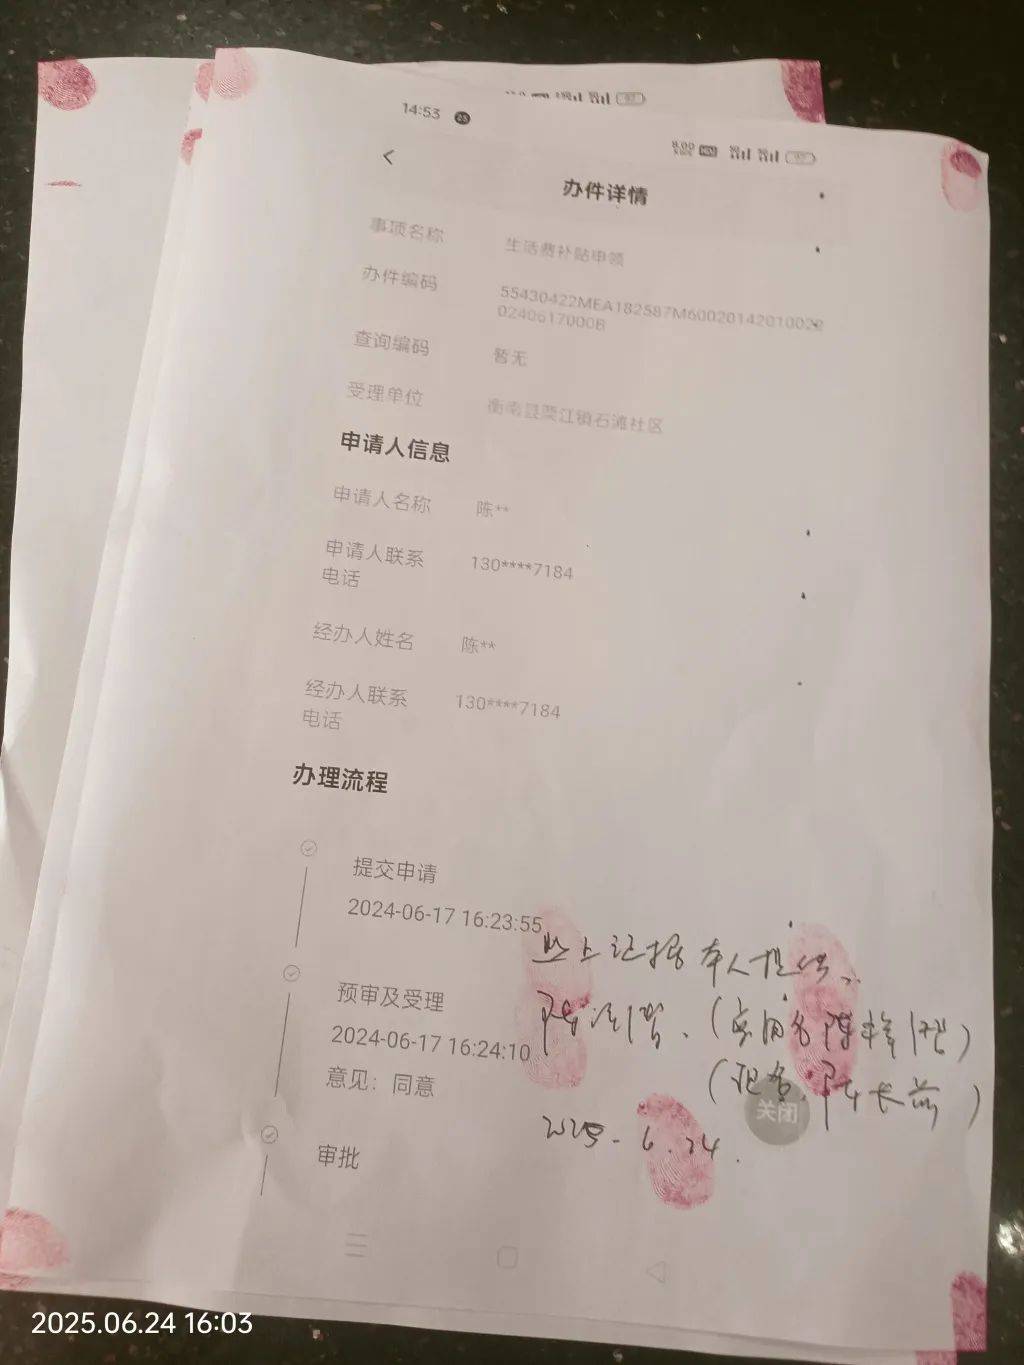 14:53
8.00
办件详情
事项名称 生活费补贴申领
办件编码 55430422MEA182587M6002014201002
0240617000B
查询编码 暂无
受理单位 衡南县栗江镇石滩社区
申请人信息
申请人名称 陈**
申请人联系 130****7184
电话
经办人姓名 陈**
经办人联系 130****7184
电话
办理流程
提交申请
2024-06-17 16:23:55
以上证据本人提供
预审及受理
2024-06-17 16:24:10
意见：同意
陈 (曾用名陈
(现名:陈长
关闭
2025-6.24.
审批
2025.06.24 16:03